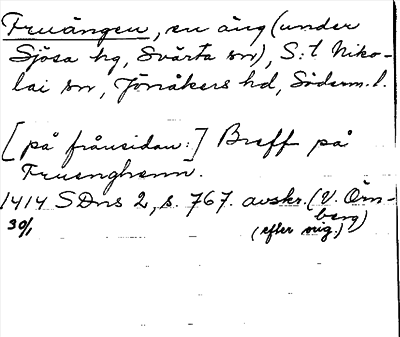 Fruängen, en äng (under
Sjösa hg, Svärta sn), S:t Niko-
lai sn, Jönåkers hd, Söderm. l.
[på frånsidan:] Breff på
Fruenghenn.
1414 SDns 2, s. 767. avskr. (V. Örn-
berg)
30/1 (efter orig.)